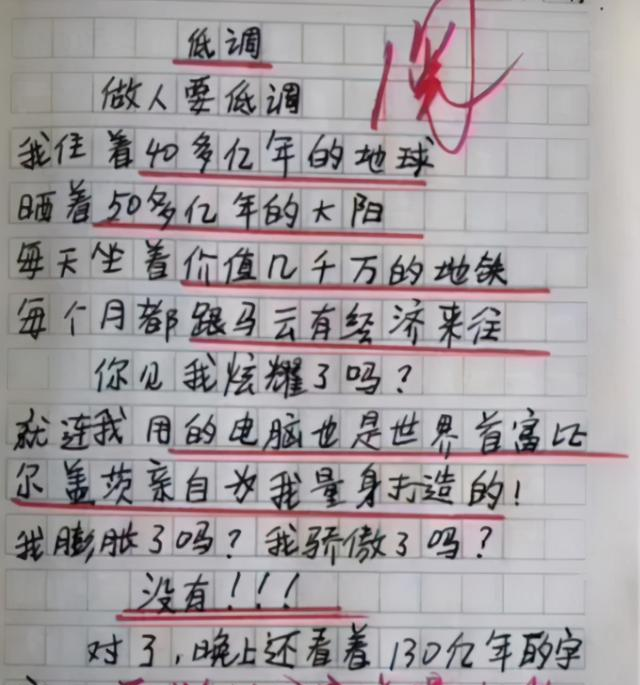 低调
做人要低调
我住着40多亿年的地球
晒着50多亿年的太阳
每天坐着价值几千万的地铁
每个月都跟马云有经济来往
你见我炫耀了吗?
就连我用的电脑也是世界首富比
尔盖茨亲自为我量身打造的!
我膨胀了吗?我骄傲了吗?
没有!!!
对了,晚上还看着130亿年的宇